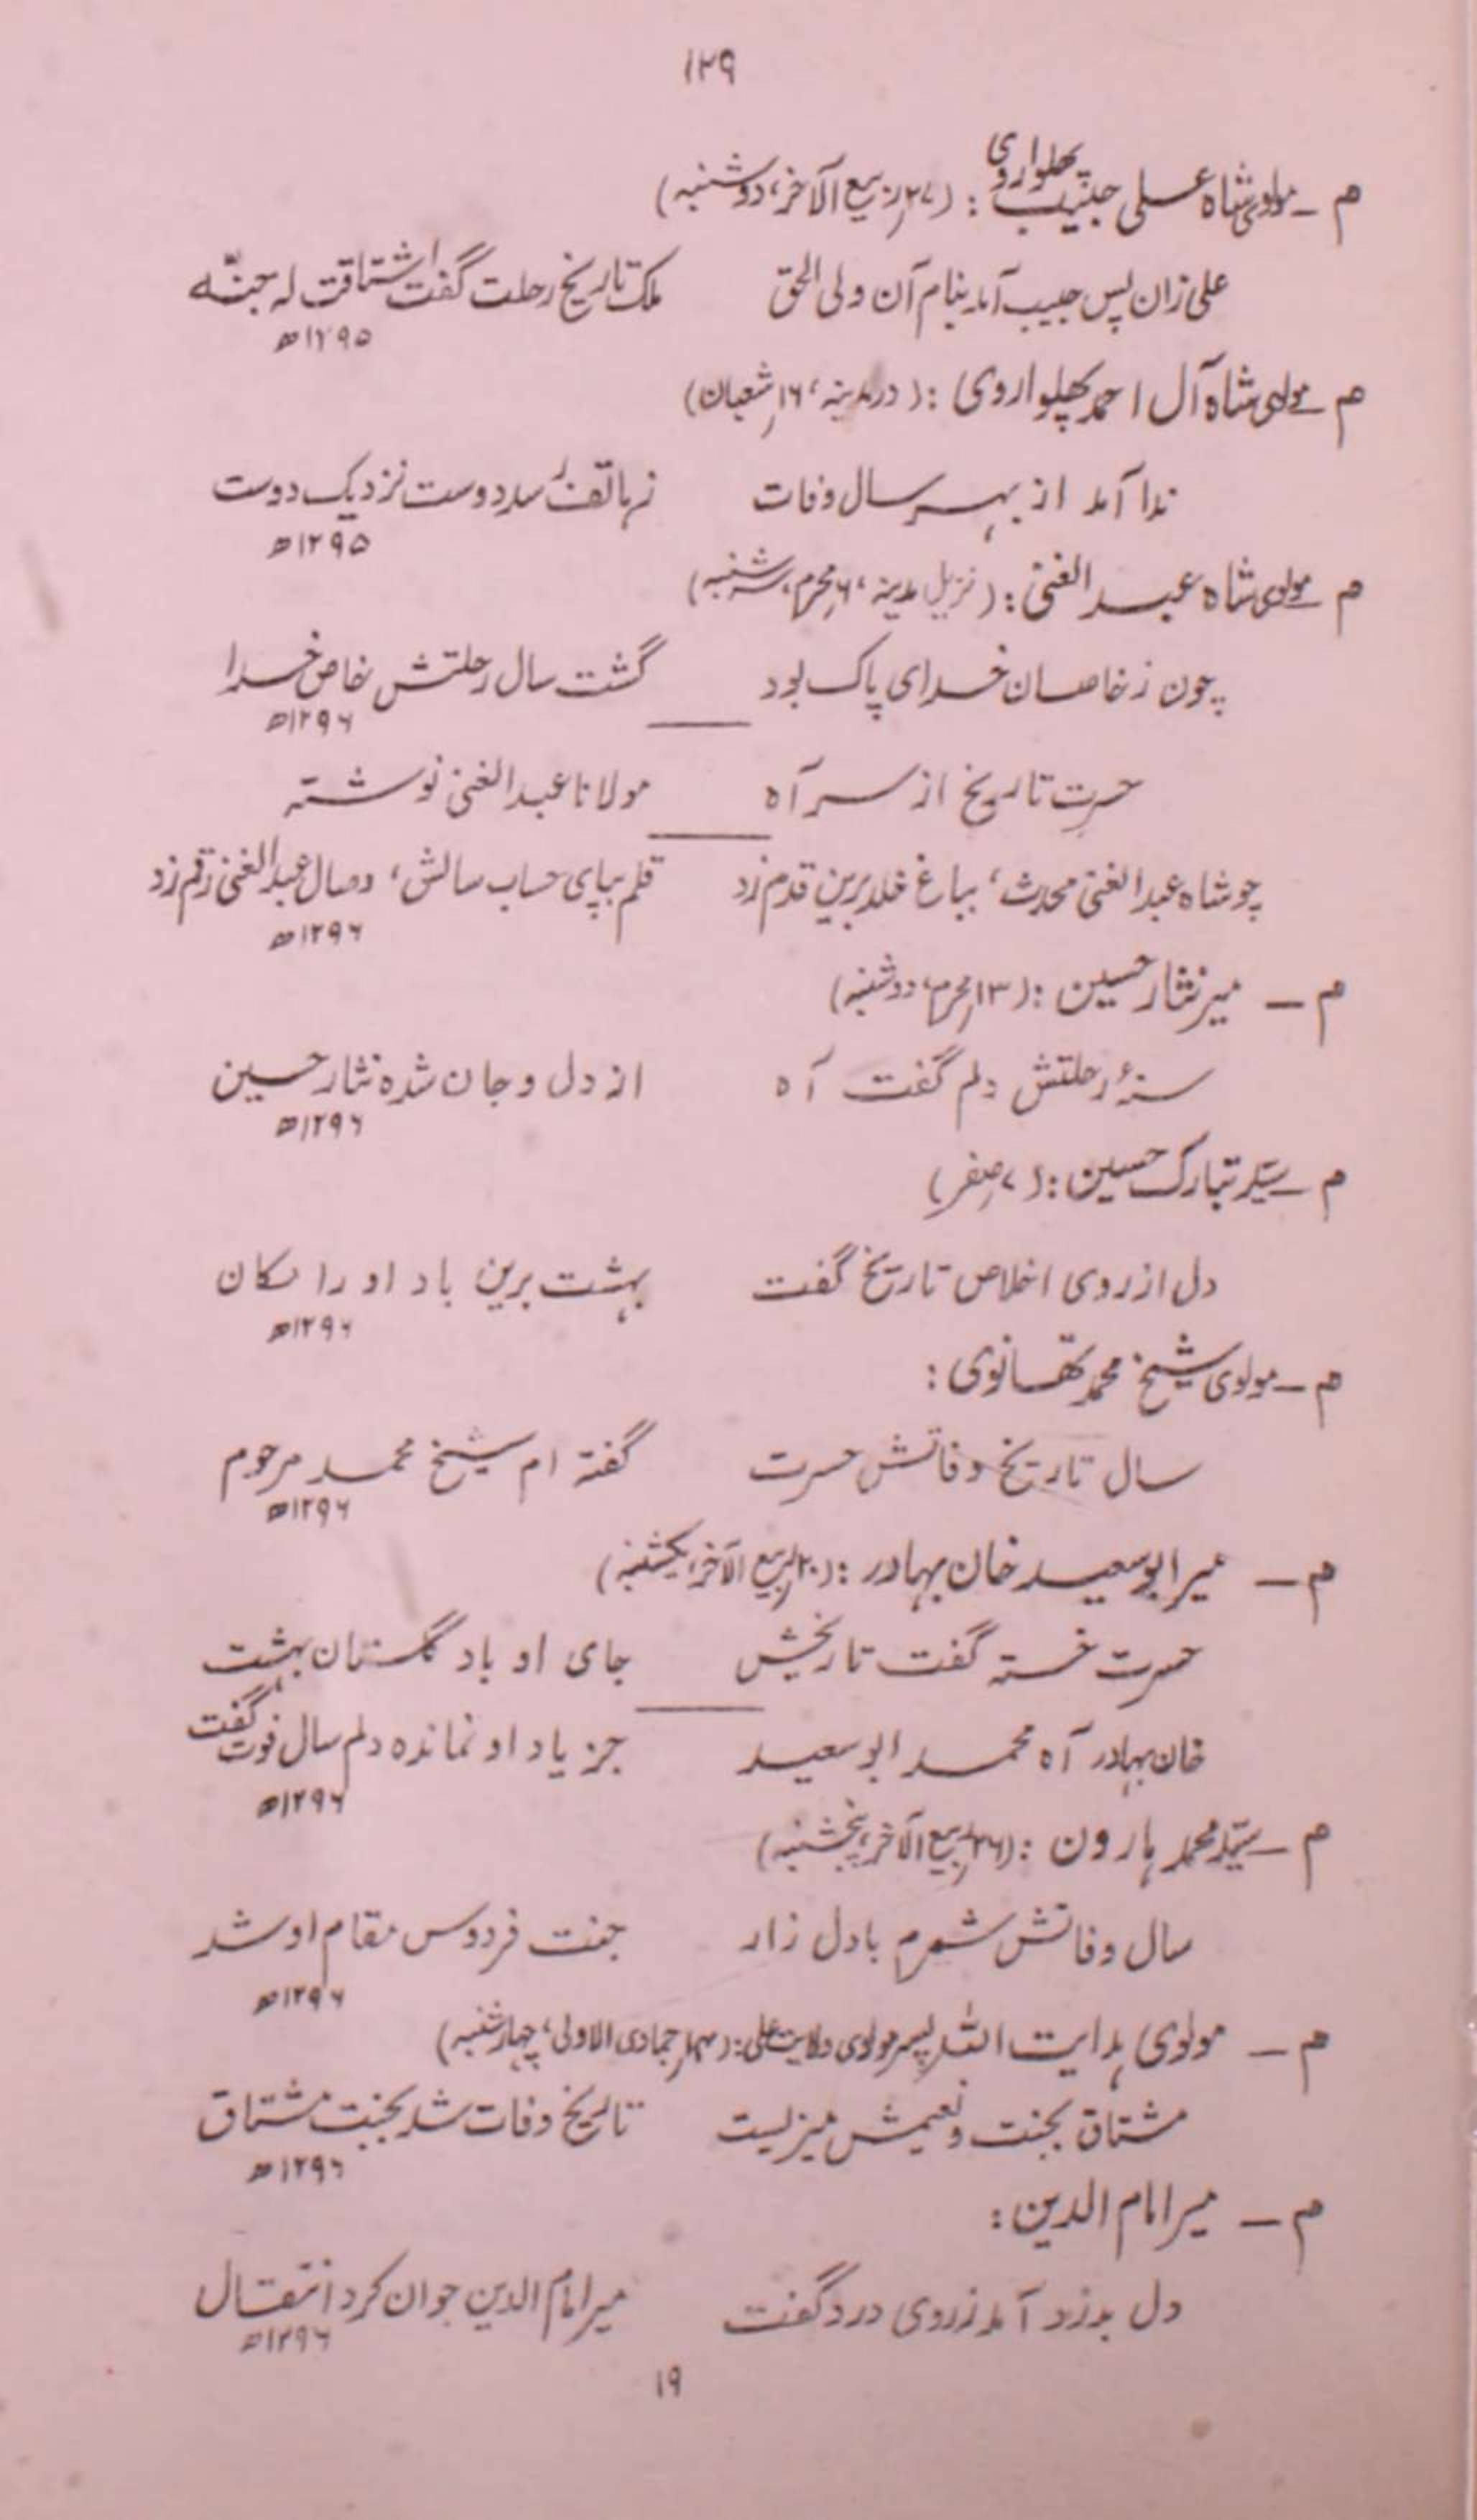 ۱۲۹
م ـ مولوی شاہ علی حبیب پھلواروی : (۲۷ ربیع الآخر، دوشنبہ)
علی زان پس حبیب آمد بنام آن ولی الحق ملک تاریخ رحلت گفت اشتاقت لہ جنّہ
۱۲۹۵ھ
م ـ مولوی شاہ آل احمد پھلواروی : (در مدینہ، ۱۶ شعبان)
ندا آمد از بہر سال وفات زہاتف رسد دوست نزدیک دوست
۱۲۹۵ھ
م ـ مولوی شاہ عبد الغنی : (نزیل مدینہ، ۶ محرم، سہ شنبہ)
چون ز خاصان خدای پاک بود گشت سال رحلتش خاص خدا
۱۲۹۶ھ
حسرت تاریخ از سر آہ مولانا عبد الغنی نوشتہ
چو شاہ عبد الغنی محدث، بباغ خلد برین قدم زد قلم بپای حساب سالش، وصال عبد الغنی رقم زد
۱۲۹۶ھ
م ـ میر نثار حسین : (۱۳ محرم، دوشنبہ)
سنۂ رحلتش دلم گفت آہ از دل و جان شدہ نثار حسین
۱۲۹۶ھ
م ـ سیّد تبارک حسین : (۷ صفر)
دل از روی اخلاص تاریخ گفت بہشت برین باد او را مکان
۱۲۹۶ھ
م ـ مولوی شیخ محمد تھانوی :
سال تاریخ وفاتش حسرت گفتہ ام شیخ محمد مرحوم
۱۲۹۶ھ
م ـ میر ابو سعید خان بہادر : (۲۰ ربیع الآخر، یکشنبہ)
حسرت خستہ گفت تاریخش جای او باد گلستان بہشت
خان بہادر آہ محمد ابو سعید جز یاد او نماندہ دلم سال فوت گفت
۱۲۹۶ھ
م ـ سیّد محمد ہارون : (۲۶ ربیع الآخر، پنجشنبہ)
سال وفاتش شمرم با دل زار جنت فردوس مقام او شد
۱۲۹۶ھ
م ـ مولوی ہدایت اللہ پسر مولوی ولایت علی : (۱۴ جمادی الاولی، چہار شنبہ)
مشتاق بجنت و نعیمش میزیست تاریخ وفات شد بجنت مشتاق
۱۲۹۶ھ
م ـ میر امام الدین :
دل بدرد آمد ز روی درد گفت میر امام الدین جوان کرد انتقال
۱۲۹۶ھ
۱۹